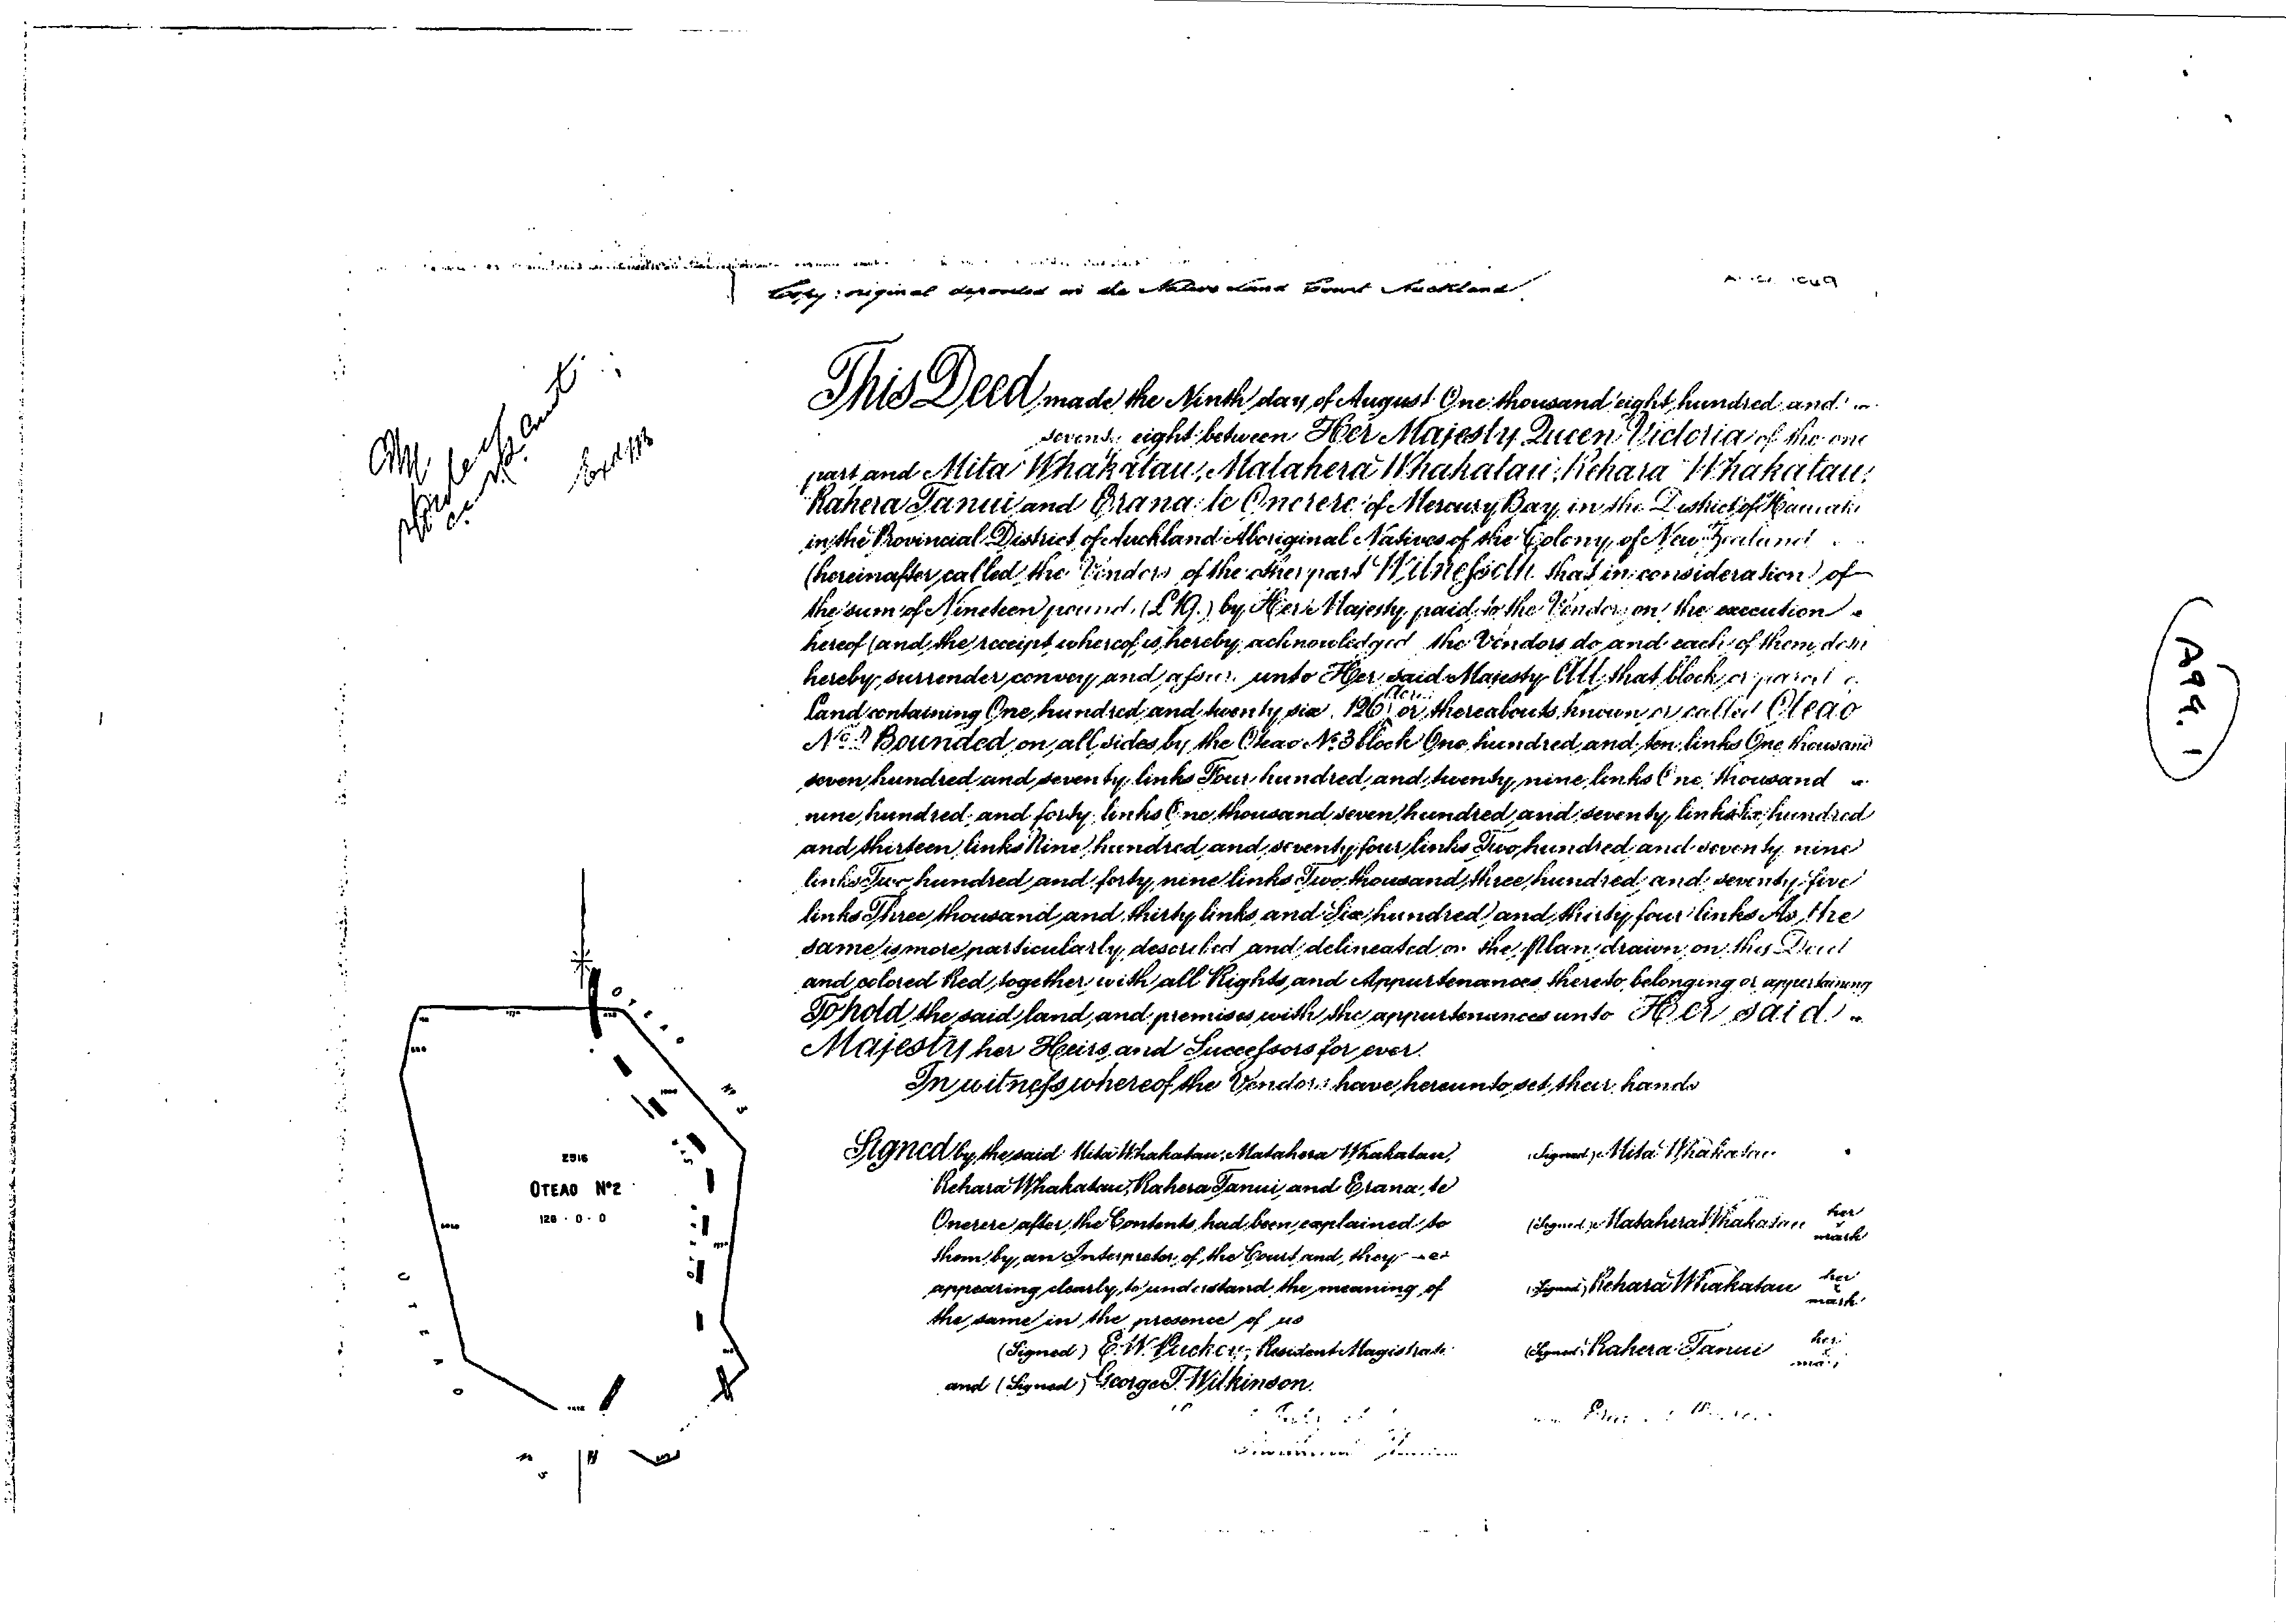 Copy: original deposited in the Native Land Court Auckland.
This Deed made the Ninth day of August One thousand eight hundred and
seventy eight between Her Majesty Queen Victoria of the one
part and Mita Whakatau, Matahera Whakatau, Rehara Whakatau,
Rahera Tanui and Erana te Onerere of Mercury Bay in the District of Hauraki
in the Provincial District of Auckland Aboriginal Natives of the Colony of New Zealand
(hereinafter called the Vendors of the other part Witnesseth that in consideration of
the sum of Nineteen pounds (£19.) by Her Majesty paid to the Vendors on the execution
hereof (and the receipt whereof is hereby acknowledged the Vendors do and each of them doth
hereby surrender convey and assure unto Her said Majesty All that block or parcel of
land containing One hundred and twenty six 126 Acres or thereabouts known or called Oteao
No 2 Bounded on all sides by the Oteao No 3 block One hundred and ten links One thousand
seven hundred and seventy links Four hundred and twenty nine links One thousand
nine hundred and forty links One thousand seven hundred and seventy links Six hundred
and thirteen links Nine hundred and seventy four links Two hundred and seventy nine
links Two hundred and forty nine links Two thousand three hundred and seventy five
links Three thousand and thirty links and Six hundred and thirty four links As the
same is more particularly described and delineated on the plan drawn on this Deed
and colored Red together with all Rights and Appurtenances thereto belonging or appertaining
To hold the said land and premises with the appurtenances unto Her said
Majesty her Heirs and Successors for ever.
In witness whereof the Vendors have hereunto set their hands
Signed by the said Mita Whakatau, Matahera Whakatau,
Rehara Whakatau, Rahera Tanui and Erana te
Onerere after the Contents had been explained to
them by an Interpreter of the Court and they
appearing clearly to understand the meaning of
the same in the presence of us
(Signed) E. W. Puckey, Resident Magistrate
and (Signed) George T. Wilkinson.
(Signed) Mita Whakatau
(Signed) Matahera Whakatau her x mark
(Signed) Rehara Whakatau her x mark
(Signed) Rahera Tanui her x mark
2916
OTEAO No 2
126 . 0 . 0
A99.1